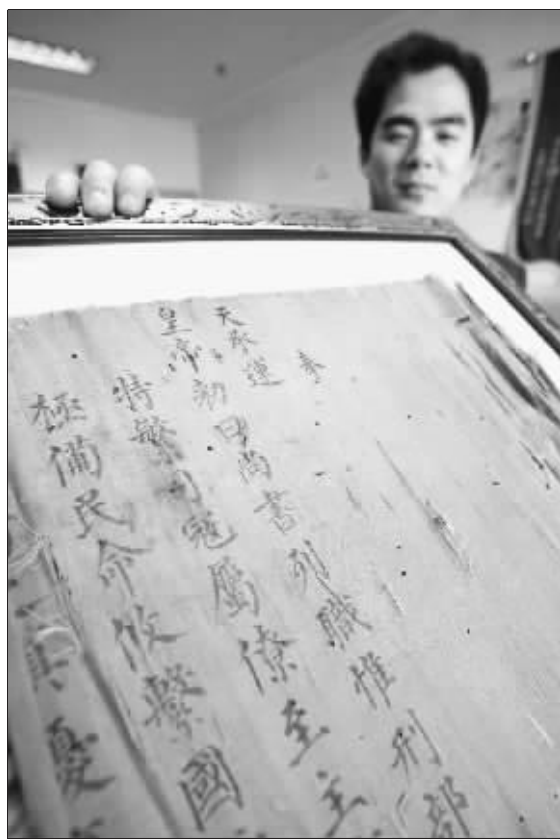 奉
天承運
皇帝勅曰尚書列職惟刑部
特繁司寇屬僚至主
極備民命攸繫國
憂